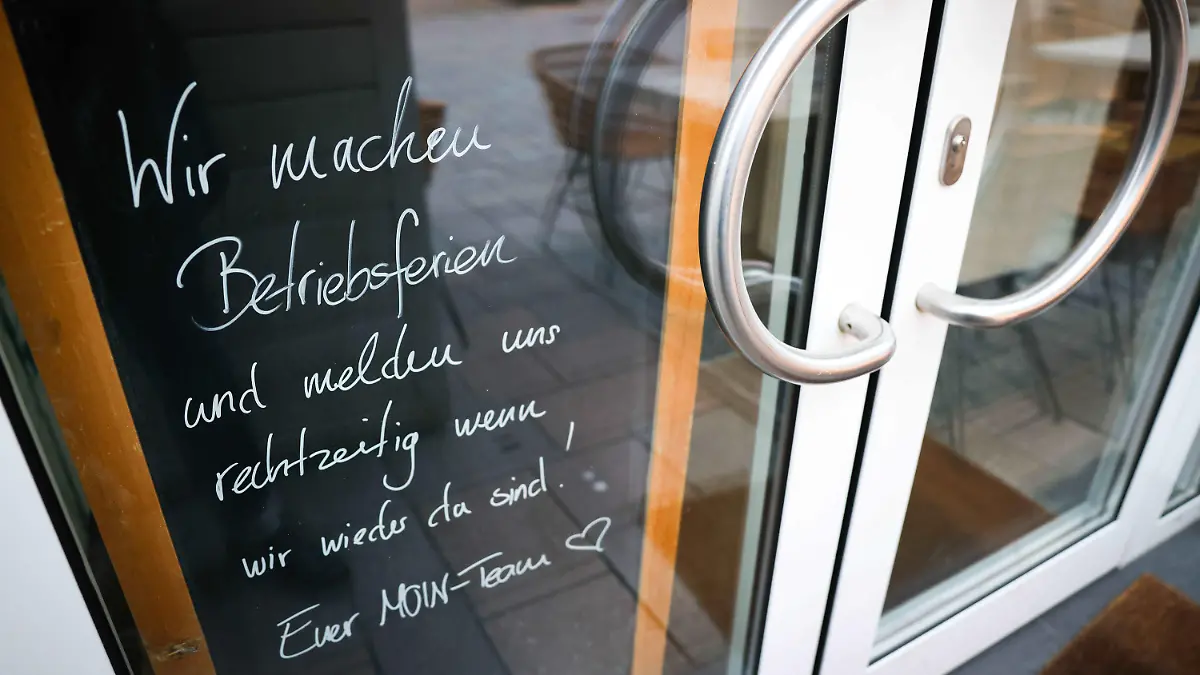 Wir machen
Betriebsferien
und melden uns
rechtzeitig wenn
wir wieder da sind!
Euer MOIN-Team ♡